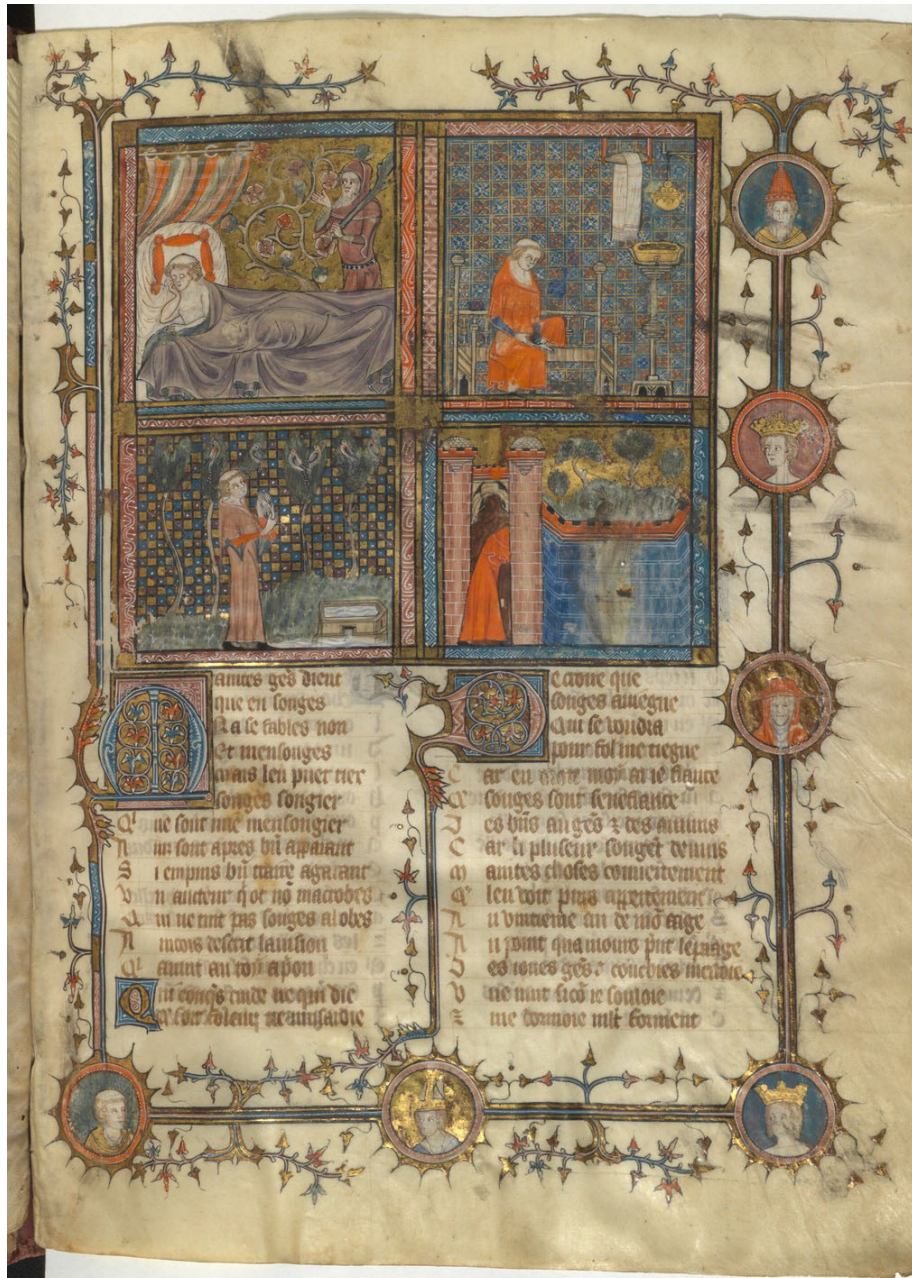 Maintes gēs dient
que en songes
Na se fables non
Et mensonges
mais len puet tiex
songes songier
Qͥ ne sont mie mensongier
Ains sont apres bn̄ apparant
Si empuis bn̄ traire a garant
Vn aucteur q̇ ot nō macrobes
Qui ne tint pas songes a lobes
Ancois descrit la uision
Qͥ auint au roy
Qui conq̄s cuide ne qui die
Ce soit folour ne musardie
De croire que
songes auiegne
Qui se uoudra
pour fol me tiegne
Car en droit moy ai ie fiance
Que songes sont senefiance
Des biēs au gēs & des anuis
Car li pluseur songēt de nuis
Maintes choses couuertement
Qͤ len uoit puis appertement
Au uintieme an de mō aage
Au point quamours prīt le paage
Des iones gēs couchies mestoie
Vne nuit sicō ie souloie
Et me dormoie mlt forment